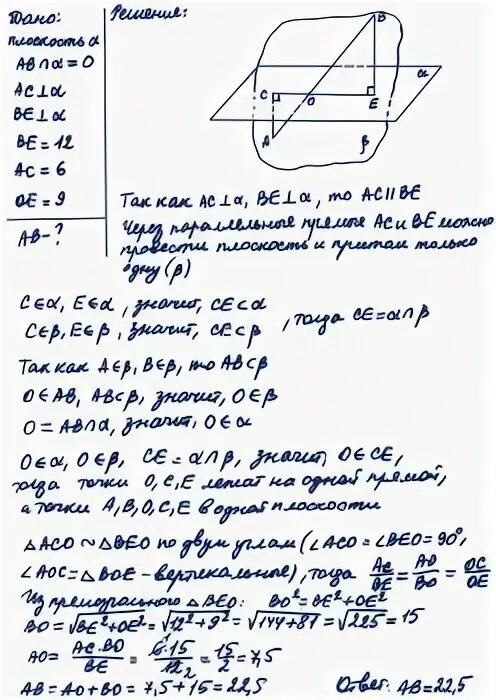 Дано:
плоскость α
AB∩α=O
AC⊥α
BE⊥α
BE=12
AC=6
OE=9
AB-?
Решения:
B
α
C
O
E
A
β
Так как AC⊥α, BE⊥α, то AC∥BE
Через параллельные прямые AC и BE можно
провести плоскость и притом только
одну (β)
C∈α, E∈α, значит, CE⊂α
C∈β, E∈β, значит, CE⊂β, тогда CE=α∩β
Так как A∈β, B∈β, то AB⊂β
O∈AB, AB⊂β, значит, O∈β
O=AB∩α, значит, O∈α
O∈α, O∈β, CE=α∩β, значит, O∈CE,
тогда точки O, C, E лежат на одной прямой,
а точки A, B, O, C, E в одной плоскости
△ACO ~ △BEO по двум углам (∠ACO=∠BEO=90°,
∠AOC=△BOE - вертикальные), тогда AC/BE = AO/BO = OC/OE
Из прямоугольного △BEO: BO²=BE²+OE²
BO=√BE²+OE²=√12²+9²=√144+81=√225=15
AO= AC·BO/BE = 6·15/12₂ = 15/2 = 7,5
AB=AO+BO=7,5+15=22,5 Ответ: AB=22,5